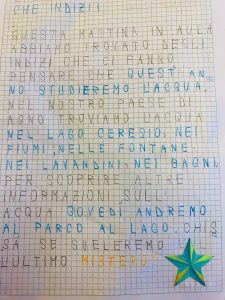 CHE INDIZI!
QUESTA MATTINA IN AULA
ABBIAMO TROVATO DEGLI
INDIZI CHE CI FANNO
PENSARE CHE QUEST'AN-
NO STUDIEREMO L'ACQUA.
NEL NOSTRO PAESE DI
AGNO TROVIAMO L'ACQUA
NEL LAGO CERESIO, NEI
FIUMI, NELLE FONTANE,
NEI LAVANDINI, NEI BAGNI.
PER SCOPRIRE ALTRE
INFORMAZIONI SULL'
ACQUA GOVEDÌ ANDREMO
AL PARCO AL LAGO. CHIS
SÀ SE SVELEREMO
L'ULTIMO MISTERO!